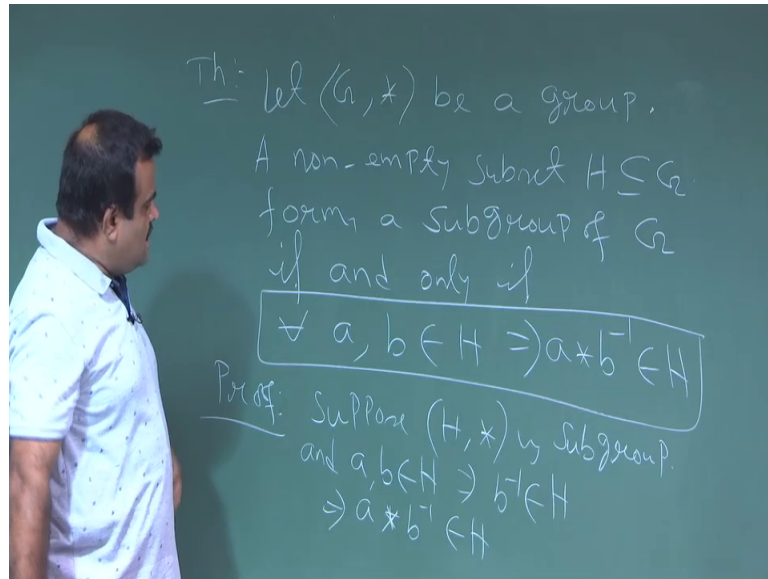 Th:- Let (G, *) be a group.
A non-empty subset H ⊆ G
forms a subgroup of G
if and only if
∀ a, b ∈ H ⇒ a * b⁻¹ ∈ H
Proof: Suppose (H, *) is subgroup.
and a, b ∈ H ⇒ b⁻¹ ∈ H
⇒ a * b⁻¹ ∈ H